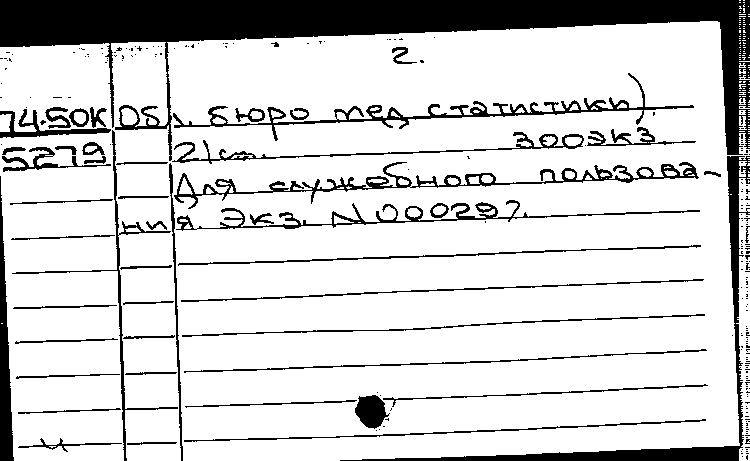 2.
74.50К Обл. бюро мед статистики).
5279 21ст. 300экз.
Для служебного пользова-
ния. Экз. N000297.
ч